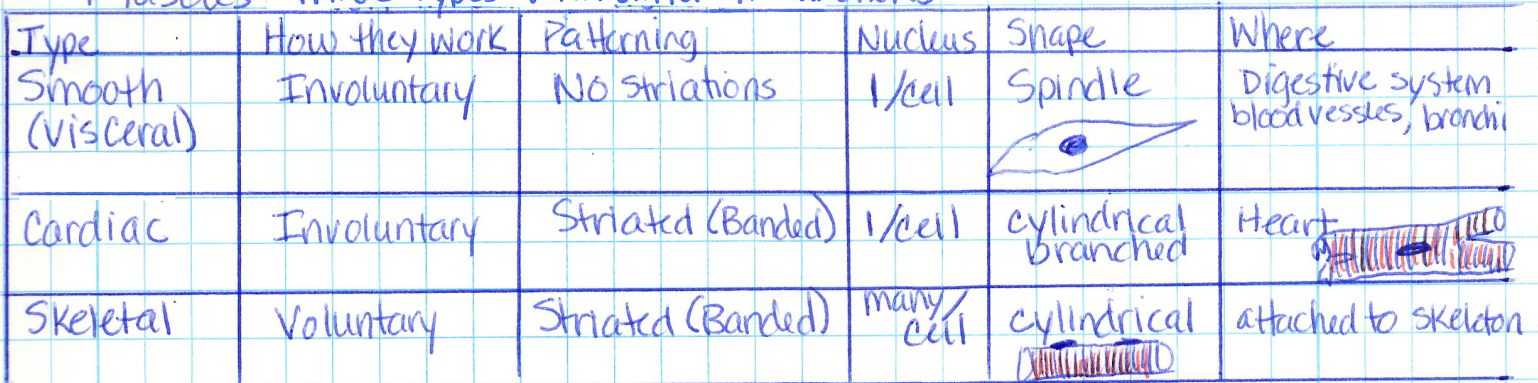 Type How they work Patterning Nucleus Shape Where
Smooth Involuntary No Striations 1/cell Spindle Digestive system
(Visceral) blood vessles, bronchi
Cardiac Involuntary Striated (Banded) 1/cell cylindrical Heart
branched
Skeletal Voluntary Striated (Banded) many/ cylindrical attached to skeleton
cell